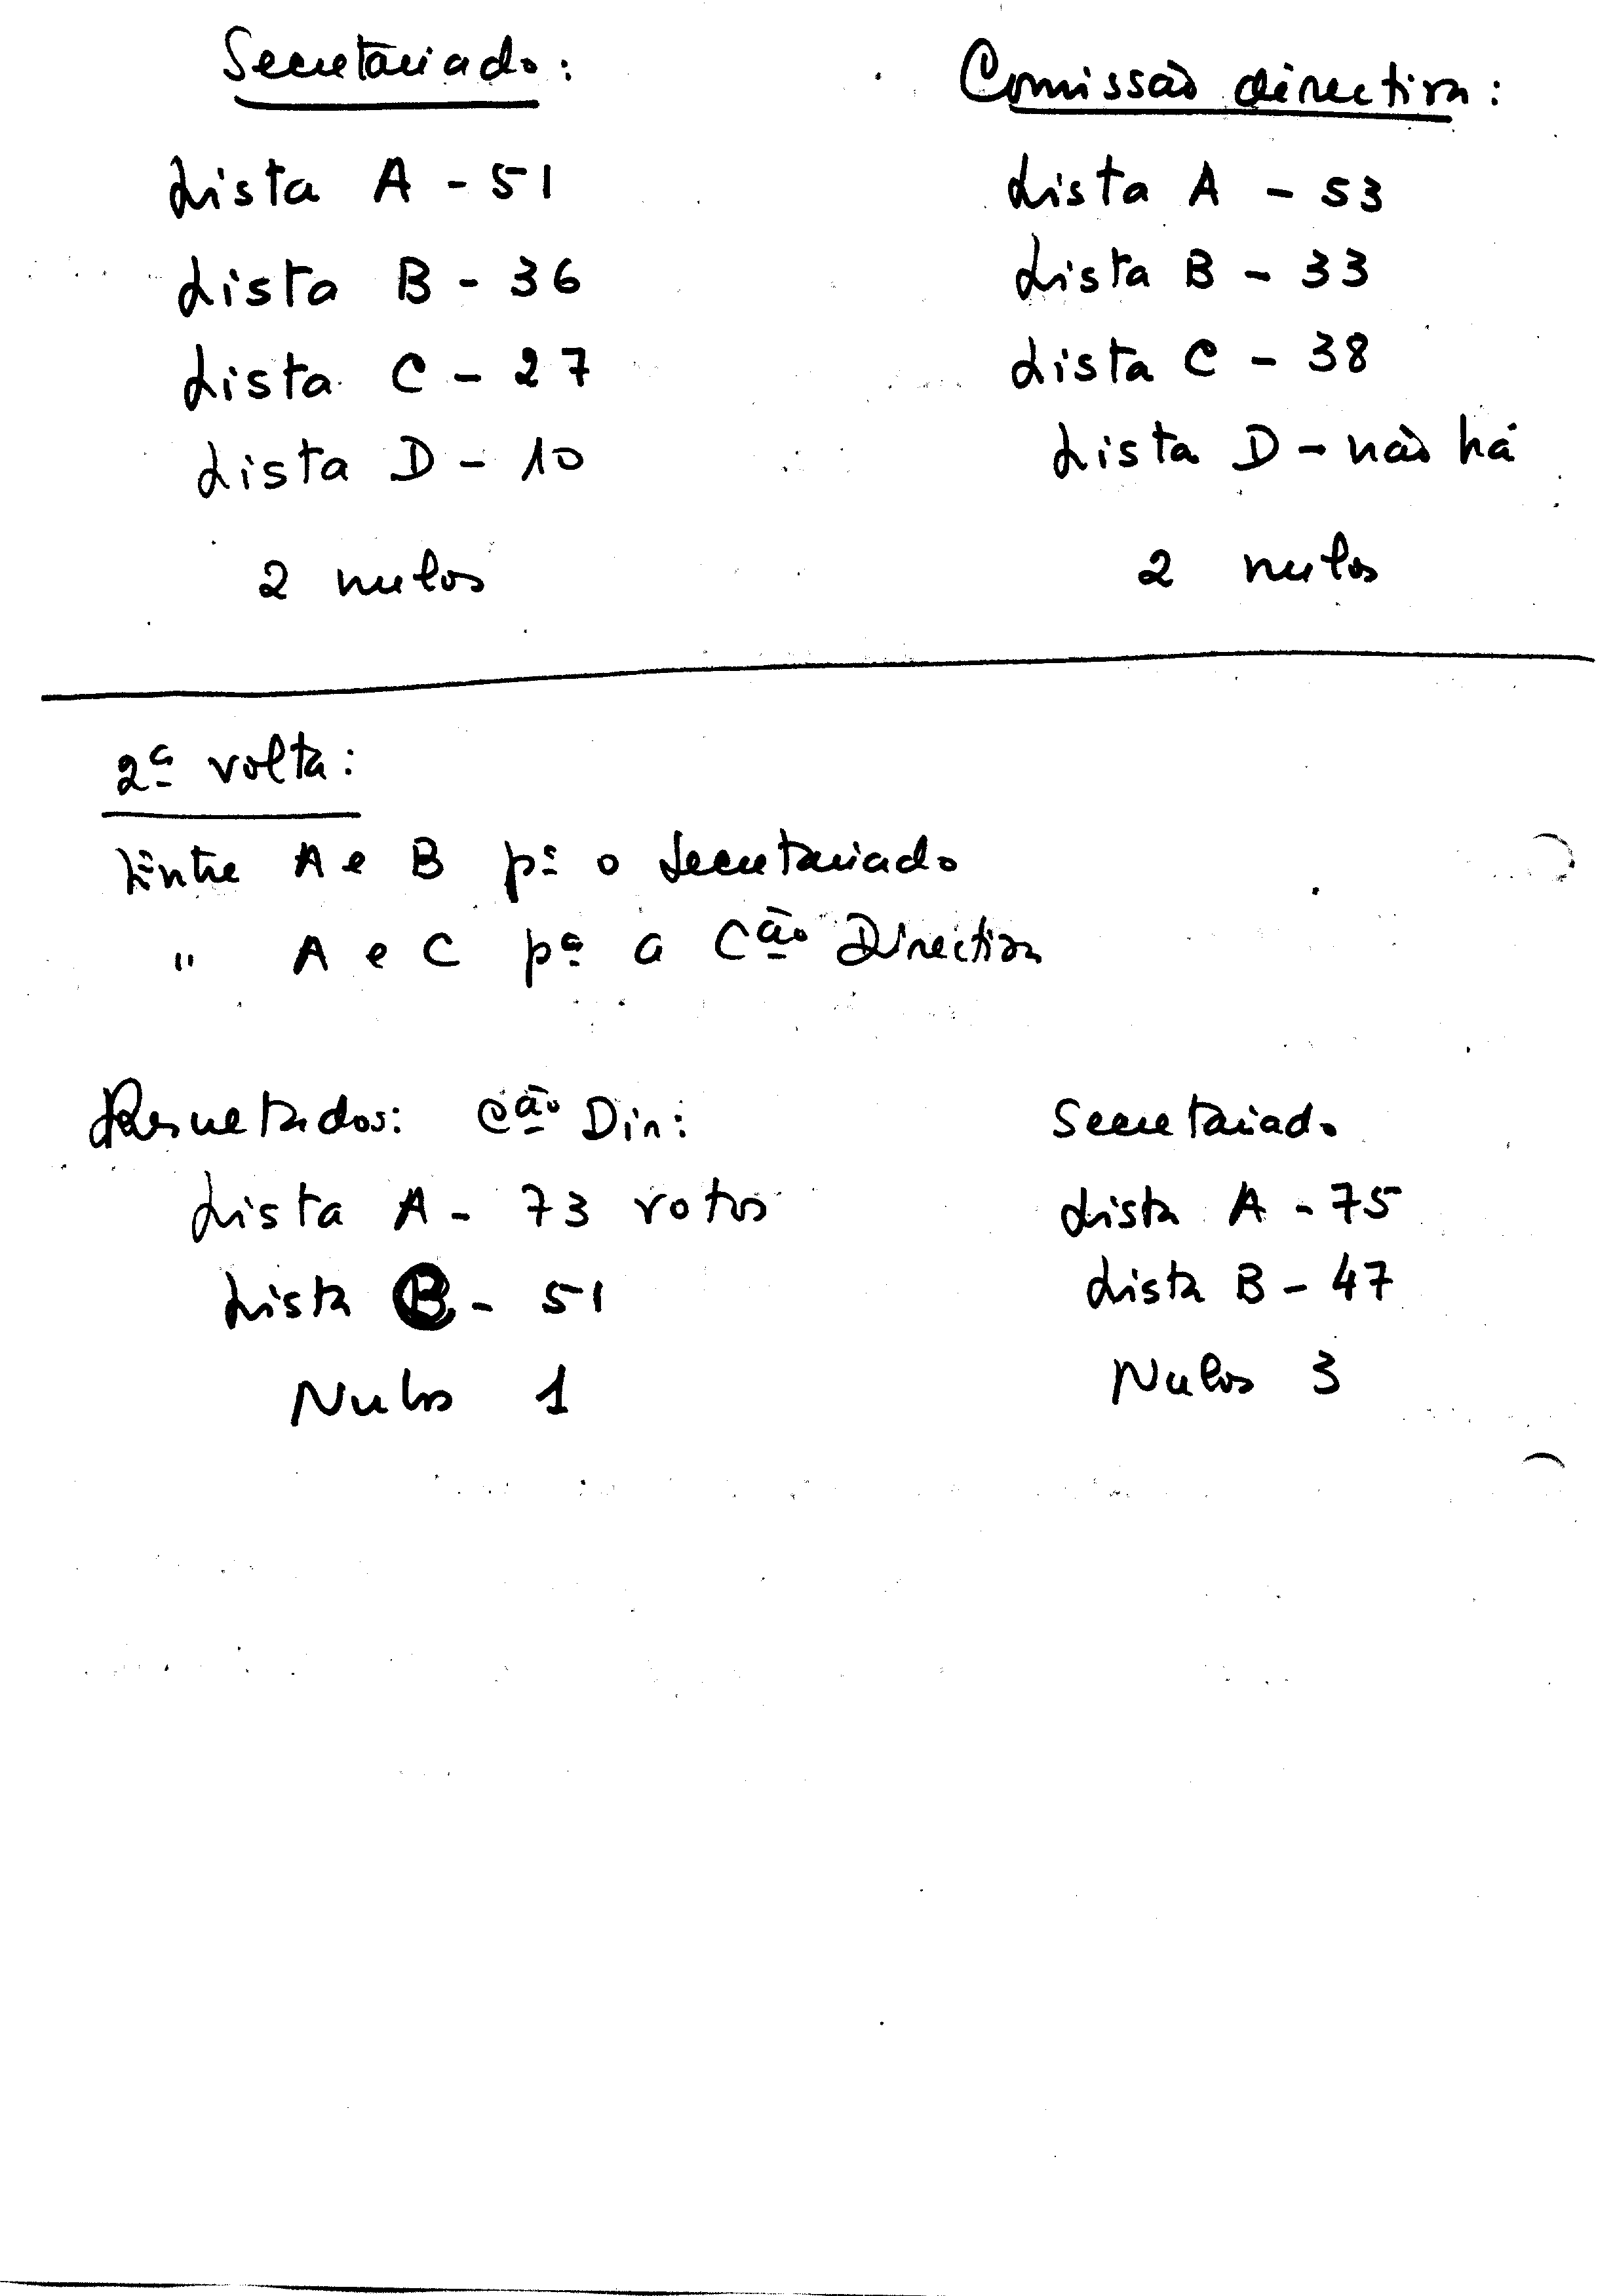 Secretariado:
Lista A - 51
Lista B - 36
Lista C - 27
Lista D - 10
2 nulos
Comissão directiva:
Lista A - 53
Lista B - 33
Lista C - 38
Lista D - não há
2 nulos
2ª volta:
Entre A e B pª o Secretariado
" A e C pª a Cão Directiva
Resultados: Cão Dir:
Lista A - 73 votos
Lista B - 51
Nulos 1
Secretariado
Lista A - 75
Lista B - 47
Nulos 3